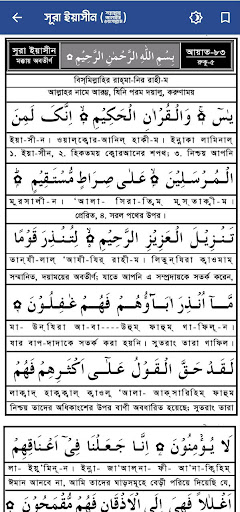 সূরা ইয়াসীন
সূরা ইয়াসীন
মক্কায় অবতীর্ণ
بِسْمِ اللّٰهِ الرَّحْمٰنِ الرَّحِيْمِ
আয়াত-৮৩
রুকু-৫
বিস্মিল্লাহির রাহ্মা-নির রাহী-ম
আল্লাহর নামে আরম্ভ, যিনি পরম দয়ালু, করুণাময়
يٰسٓ ۞ وَالْقُرْاٰنِ الْحَكِيْمِ ۞ اِنَّكَ لَمِنَ
ইয়া-সী-ন। ওয়াল্ক্বোর্আ-নিল্ হাকী-ম। ইন্নাকা লামিনাল্
১. ইয়াসীন, ২. হিকতময় কোরআনের শপথ; ৩. নিশ্চয় আপনি
الْمُرْسَلِيْنَ ۞ عَلٰى صِرَاطٍ مُّسْتَقِيْمٍ ۞
মুরসালী-ন। 'আলা- সিরা-তিম্ মুসতাক্বী-ম।
প্রেরিত, ৪. সরল পথের উপর।
تَنْزِيْلَ الْعَزِيْزِ الرَّحِيْمِ ۞ لِتُنْذِرَ قَوْمًا
তান্যী-লাল্ 'আযী-যির্ রাহী-ম। লিতুন্যিরা ক্বাওমাম্
সম্মানিত, দয়াময়ের অবতীর্ণ: যাতে আপনি এ সম্প্রদায়কে সতর্ক করেন,
مَّآ اُنْذِرَ اٰبَآؤُهُمْ فَهُمْ غٰفِلُوْنَ ۞
মা- উন্যিরা আ-বা----উহুম্ ফাহুম্ গা-ফিলূ-ন।
যার বাপ-দাদাকে সতর্ক করা হয়নি। সুতরাং তারা গাফিল।
لَقَدْ حَقَّ الْقَوْلُ عَلٰٓى اَكْثَرِهِمْ فَهُمْ
লাক্বাদ্ হাক্ক্বাল্ ক্বাওলু 'আলা- আক্সারিহিম্ ফাহুম্
নিশ্চয় তাদের অধিকাংশের উপর বাণী অবধারিত হয়েছে; সুতরাং তারা
لَا يُؤْمِنُوْنَ ۞ اِنَّا جَعَلْنَا فِيْٓ اَعْنَاقِهِمْ
লা- ইয়ু'মিনূ-ন। ইন্না- জা'আল্না- ফী- আ'না-ক্বিহিম্
ঈমান আনবে না, আমি তাদের ঘাড়সমূহে বেড়ী পরিয়ে দিয়েছি যে,
اَغْلٰلًا فَهِىَ اِلَى الْاَذْقَانِ فَهُمْ مُّقْمَحُوْنَ ۞